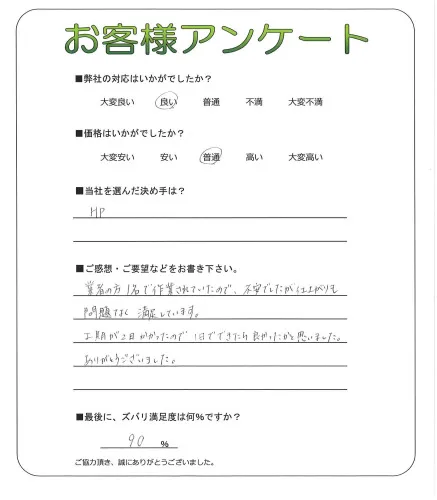 お客様アンケート
■弊社の対応はいかがでしたか？
大変良い 良い 普通 不満 大変不満
■価格はいかがでしたか？
大変安い 安い 普通 高い 大変高い
■当社を選んだ決め手は？
HP
■ご感想・ご要望などをお書き下さい。
業者の方1名で作業されていたので、不安でしたが仕上がりも
問題なく満足しています。
工期が2日かかったので1日でできたら良かったかと思いました。
ありがとうございました。
■最後に、ズバリ満足度は何%ですか？
90 %
ご協力頂き、誠にありがとうございました。